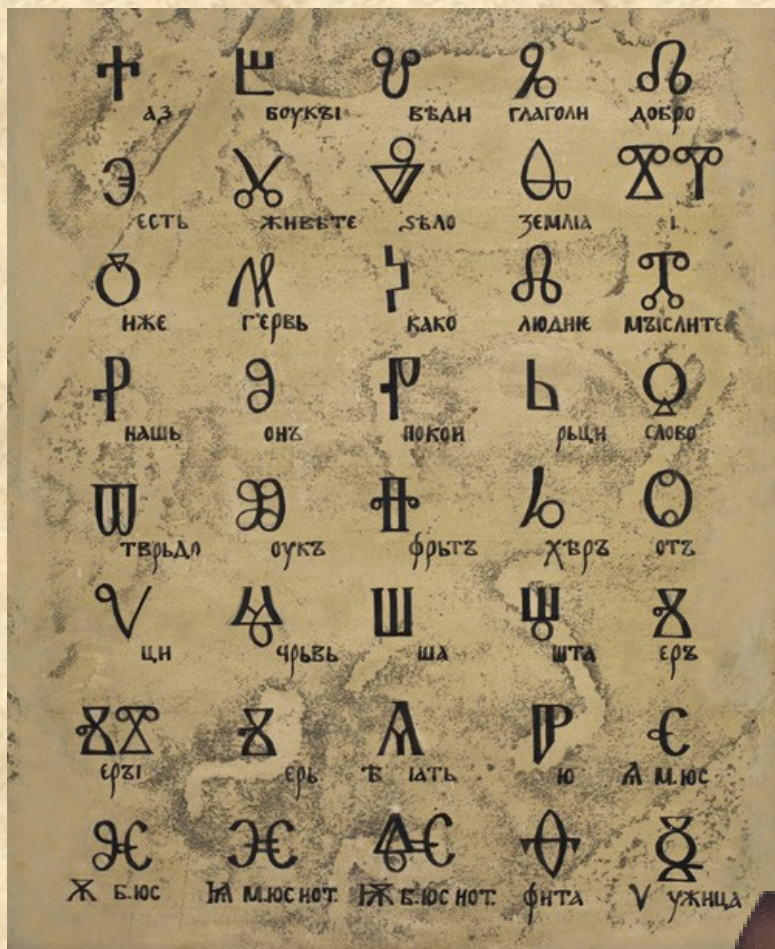 Ⰰ Ⰱ Ⰲ Ⰳ Ⰴ
аз боукꙑ вѣди глаголи добро
Ⰵ Ⰶ Ⰷ Ⰸ ⰊⰉ
єсть живѣте ѕѣло землꙗ і
Ⰻ Ⰼ Ⰽ Ⰾ Ⰿ
иже г҄ервь како людиѥ мꙑслите
Ⱀ Ⱁ Ⱂ Ⱃ Ⱄ
нашь онъ покои рьци слово
Ⱅ Ⱆ Ⱇ Ⱈ Ⱉ
тврьдо оукъ фрьтъ хѣръ отъ
Ⱌ Ⱍ Ⱎ Ⱋ Ⱏ
ци чрьвь ша шта єръ
ⰟⰊ Ⱐ Ⱑ Ⱓ Ⱔ
єрꙑ єрь ѣ іать ю ѧ м.юс
Ⱘ Ⱗ Ⱙ Ⱚ Ⱛ
ѫ б.юс ѩ м.юс иот. ѭ б.юс иот. фита ѵ ужица